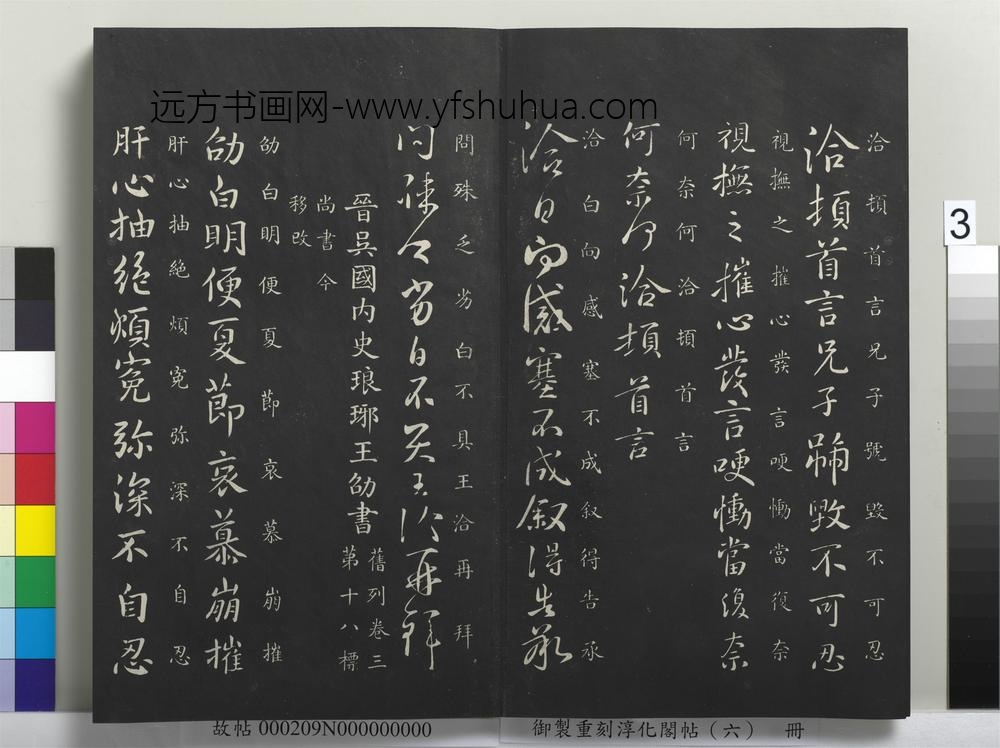 远方书画网-www.yfshuhua.com
洽頓首言兄子號毀不可忍
洽頓首言兄子號毀不可忍
視撫之摧心發言哽慟當復奈
視撫之摧心發言哽慟當復奈
何奈何洽頓首言
何奈何洽頓首言
洽白向感塞不成叙得告承
洽白向感塞不成叙得告承
問殊乏劣白不具王洽再拜
問殊乏劣白不具王洽再拜
晉吳國内史琅琊王劭書
舊列卷三
第十八標
尚書令
移改
劭白明便夏節哀慕崩摧
劭白明便夏節哀慕崩摧
肝心抽絶煩寃弥深不自忍
肝心抽絶煩寃弥深不自忍
3
故帖 000209N000000000
御製重刻淳化閣帖（六） 冊